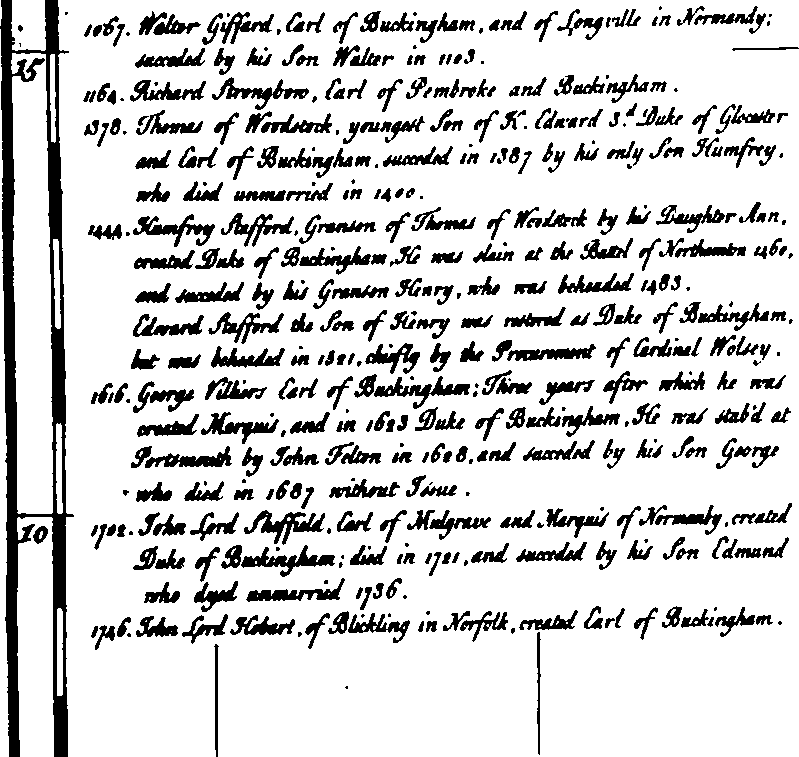 1067. Walter Giffard, Earl of Buckingham, and of Longville in Normandy;
succeded by his Son Walter in 1103.
15
1164. Richard Strongbow, Earl of Pembroke and Buckingham.
1378. Thomas of Woodstock, youngest Son of K. Edward 3.d Duke of Glocester
and Earl of Buckingham, succeded in 1387 by his only Son Humfrey,
who died unmarried in 1400.
1444. Humfrey Stafford, Granson of Thomas of Woodstock by his Daughter Ann,
created Duke of Buckingham, He was slain at the Battel of Northamton 1460,
and succeded by his Granson Henry, who was beheaded 1483.
Edward Stafford the Son of Henry was restored as Duke of Buckingham,
but was beheaded in 1521, chiefly by the Procurement of Cardinal Wolsey.
1616. George Villiers Earl of Buckingham; Three years after which he was
created Marquis, and in 1623 Duke of Buckingham, He was stab'd at
Portsmouth by John Felton in 1628, and succeded by his Son George
who died in 1687 without Issue.
10
1702. John Lord Sheffield, Earl of Mulgrave and Marquis of Normanby, created
Duke of Buckingham; died in 1721, and succeded by his Son Edmund
who dyed unmarried 1736.
1746. John Lord Hobart, of Blickling in Norfolk, created Earl of Buckingham.